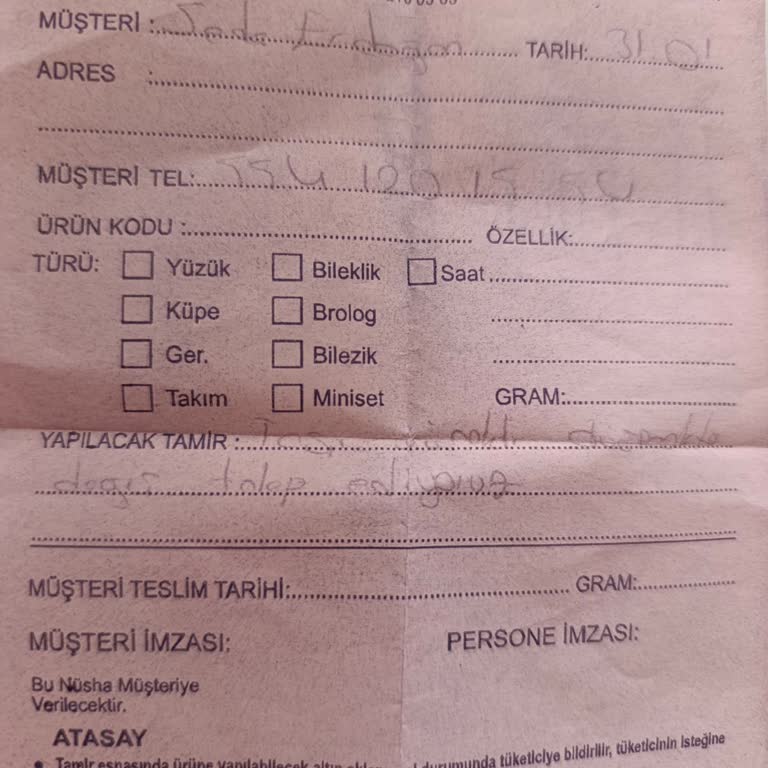 MÜŞTERİ :................ TARİH:... 31.01
ADRES :................
MÜŞTERİ TEL:................
ÜRÜN KODU :................ ÖZELLİK:................
TÜRÜ: Yüzük Bileklik Saat................
Küpe Brolog
Ger. Bilezik
Takım Miniset GRAM:................
YAPILACAK TAMİR :................
talep ediyoruz
MÜŞTERİ TESLİM TARİHİ:................ GRAM:................
MÜŞTERİ İMZASI: PERSONE İMZASI:
Bu Nüsha Müşteriye
Verilecektir.
ATASAY
• Tamir esnasında ürüne yapılabilecek altın durumunda tüketiciye bildirilir, tüketicinin isteğine